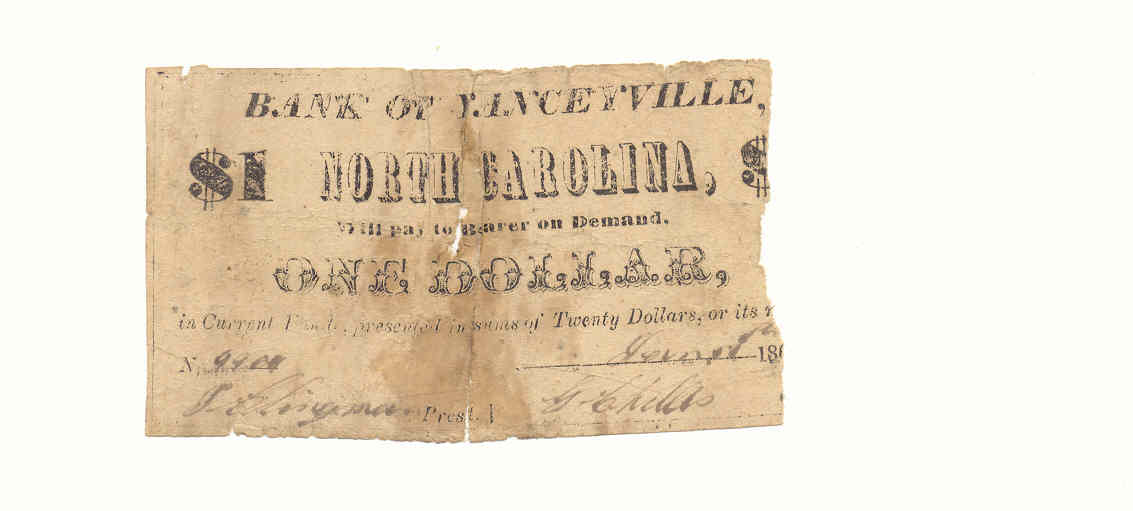 BANK OF YANCEYVILLE,
$1 NORTH CAROLINA, $
Will pay to Bearer on Demand.
ONE DOLLAR,
in Current Funds, presented in sums of Twenty Dollars, or its
N. 186
Prest.